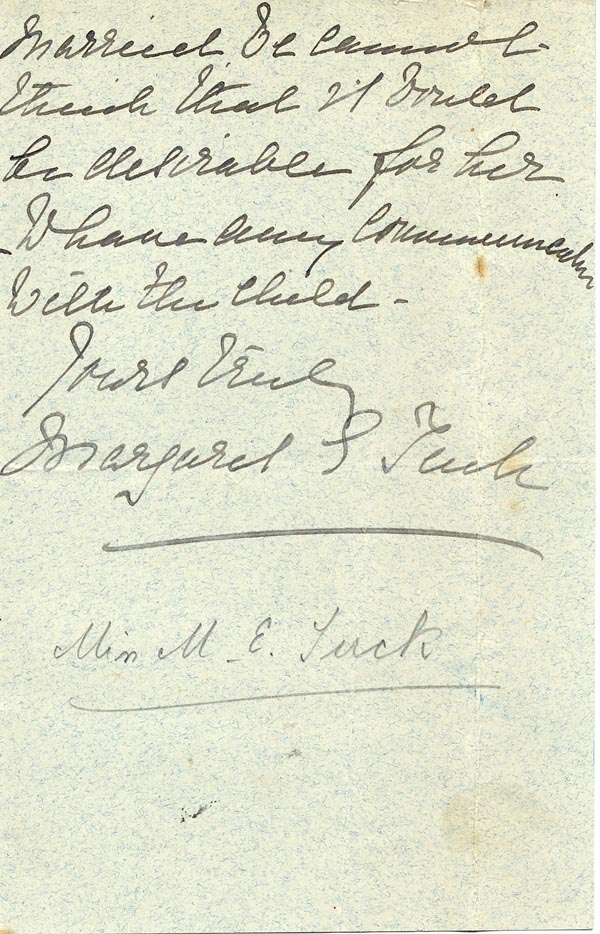 married We cannot
think that it would
be desirable for her
to have any communication
with the child -
Yours truly
Margaret E Tuck
Miss M. E. Tuck